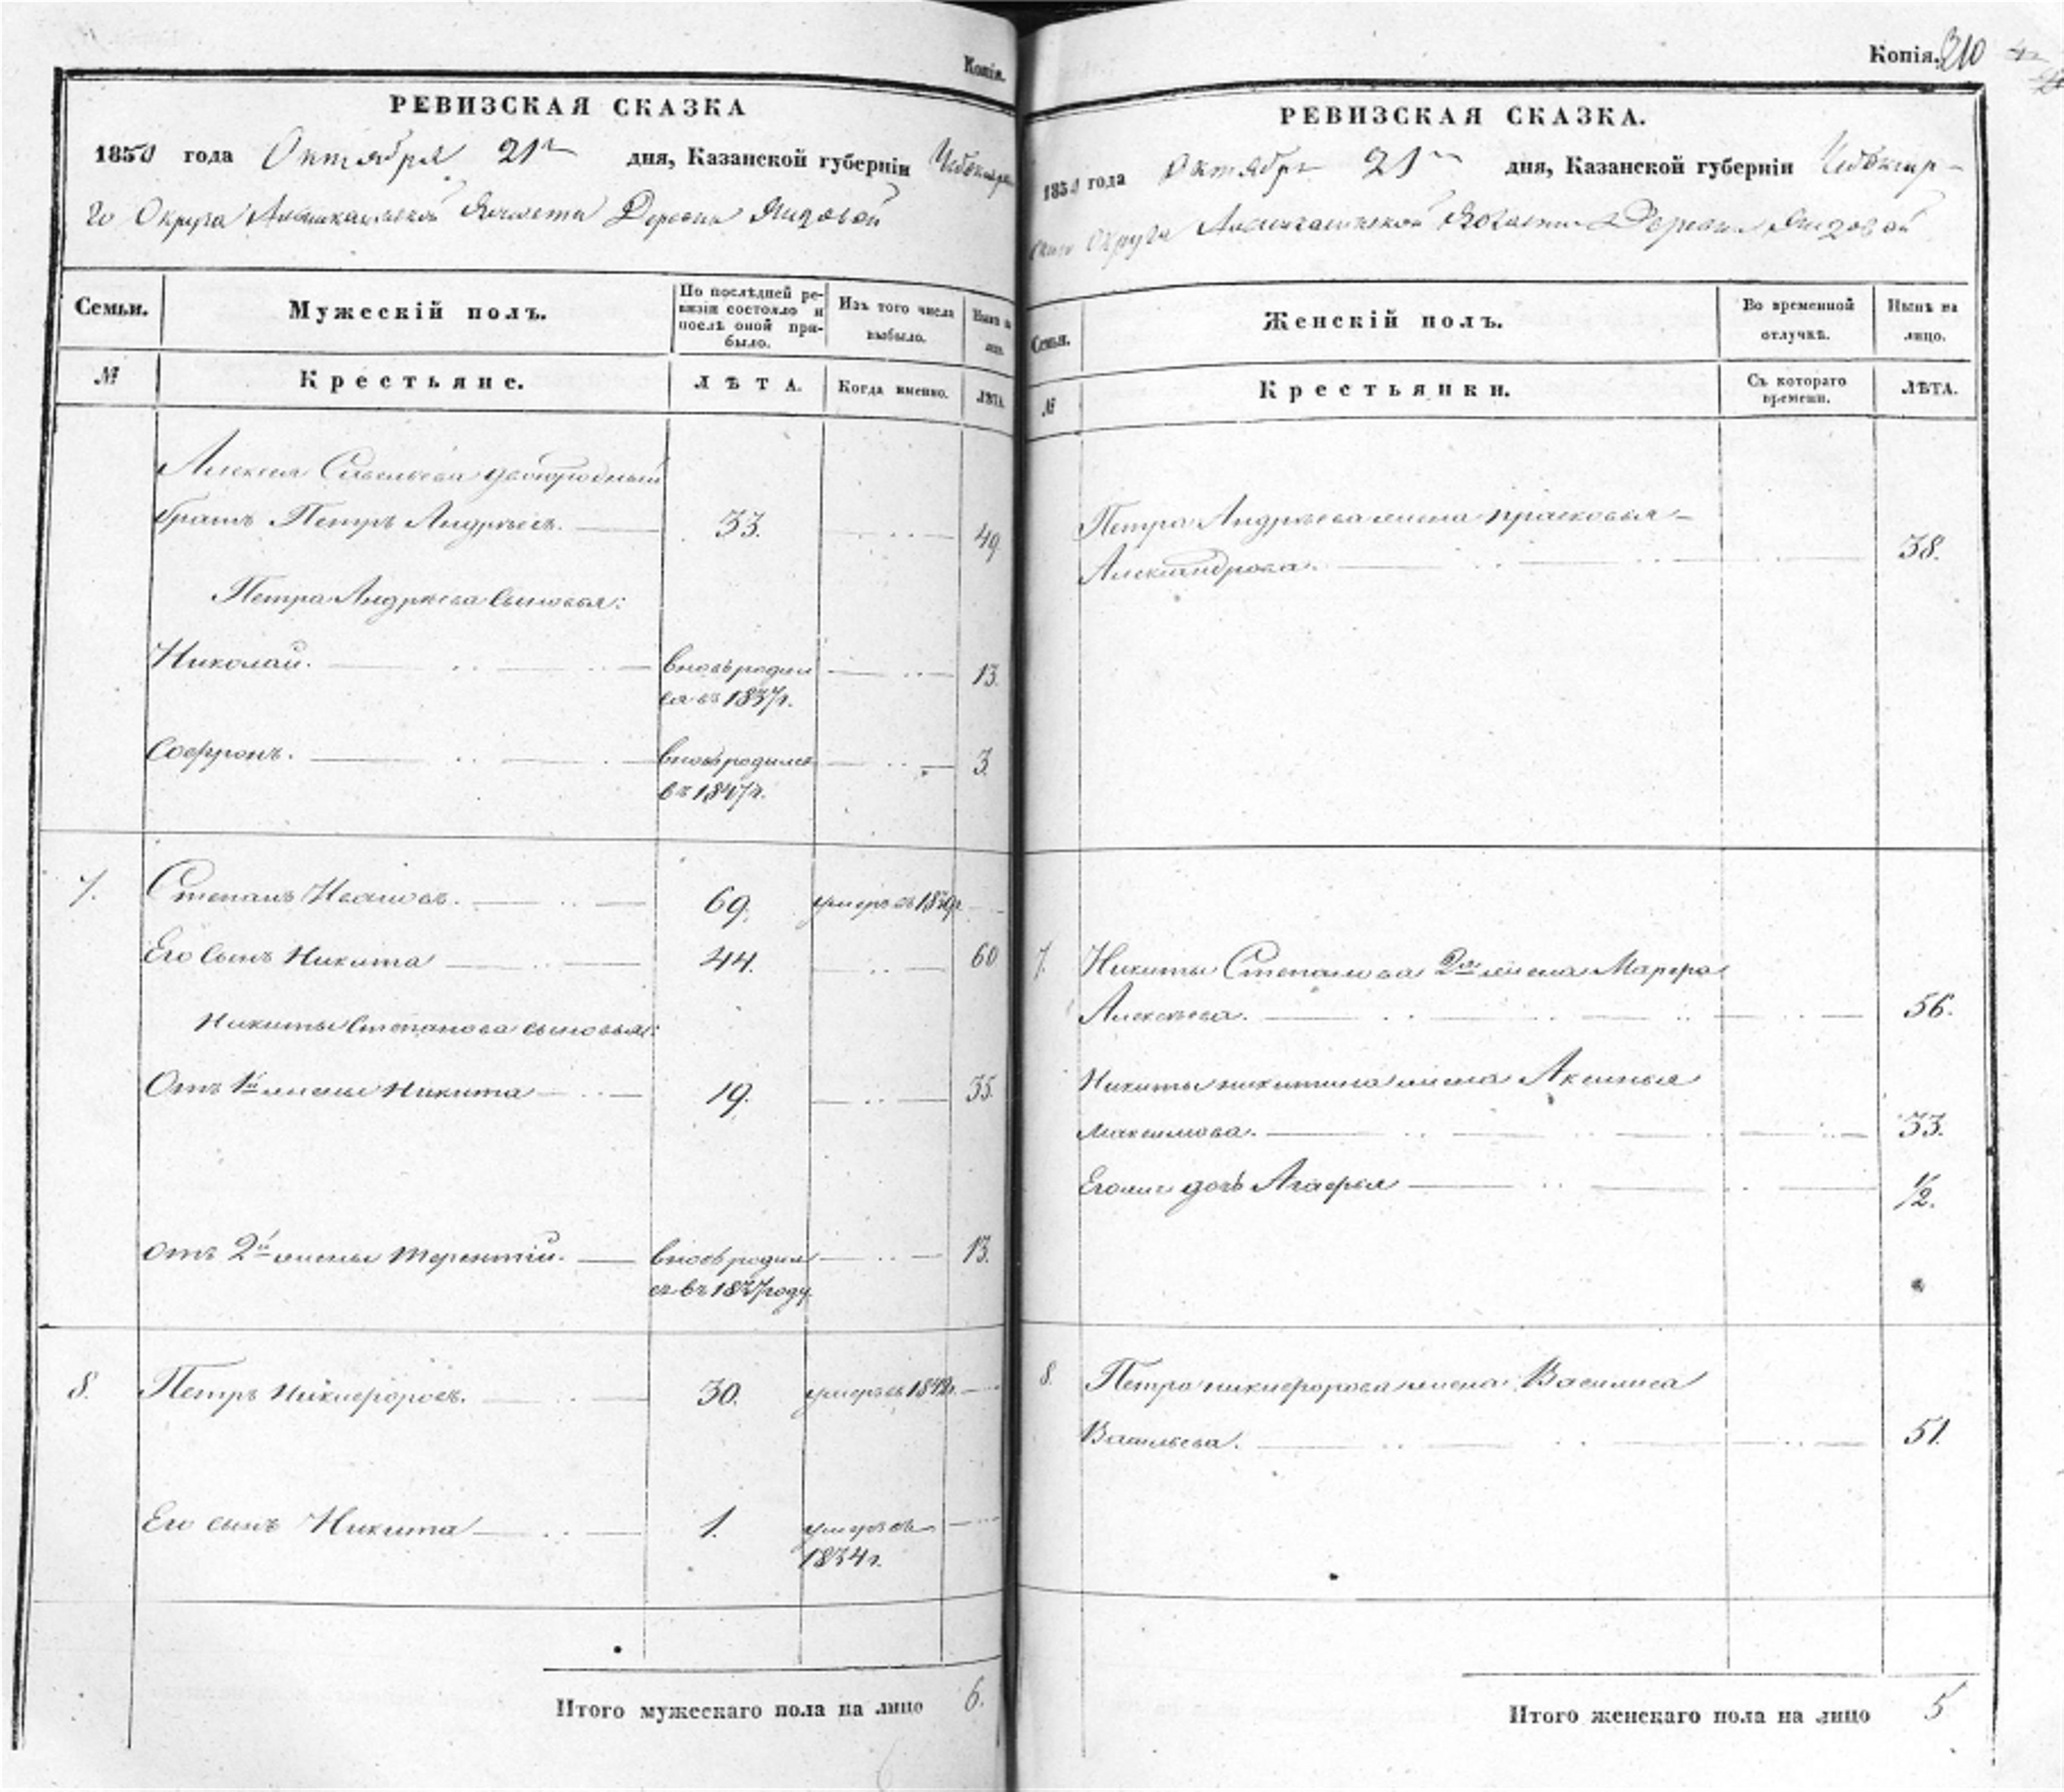 Копія.
РЕВИЗСКАЯ СКАЗКА
1850 года Октября 21го дня, Казанской губерніи Чебоксарска
го Округа Волости Деревни Яндовой
Семьи.
Мужескій полъ.
По послѣдней ре-
визіи состояло и
послѣ оной при-
было.
Изъ того числа
выбыло.
Нынѣ на
лицо.
№
Крестьяне.
ЛѢТА.
Когда именно.
ЛѢТА.
Алексея Савельева двоюродный
братъ Петръ Андреевъ. 33. 49.
Петра Андреева сыновья:
Николай. вновь родил 13.
ся въ 1837 г.
Софронъ. вновь родился 3.
въ 1847 г.
7. Степанъ Ивановъ. 69. умеръ въ
Его сынъ Никита 44. 60
Никиты Степанова сыновья:
Отъ 1й жены Никита 19. 35.
отъ 2й жены Терентій. вновь родил 13.
ся въ 1837 году
8. Петръ Никифоровъ. 30. умеръ въ
Его сынъ Никита 1. умеръ въ
1834 г.
Итого мужескаго пола на лицо 6.
Копія. 210
РЕВИЗСКАЯ СКАЗКА.
1850 года Октября 21го дня, Казанской губерніи Чебоксар-
скаго Округа Волости Деревни Яндовой
Семьи.
Женскій полъ.
Во временной
отлучкѣ.
Нынѣ на
лицо.
№
Крестьянки.
Съ котораго
времени.
ЛѢТА.
Петра Андреева жена Прасковья
Александрова. 38.
7. Никиты Степанова 2я жена Марфа
Алексеева. 56.
Никиты Никитина жена Аксинья
Максимова. 33.
Его же дочь Агафья 1/2.
8. Петра Никифорова жена Василиса
Васильева. 51.
Итого женскаго пола на лицо 5